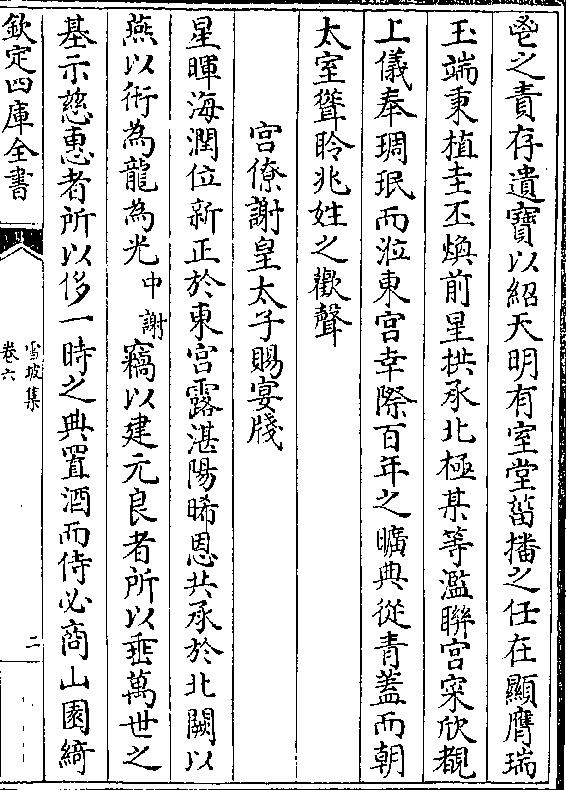 鬯之責存遺寶以紹天明有室堂菑播之任在顯膺瑞
玉端秉植圭丕煥前星拱承北極某等濫聯宫寀欣覩
上儀奉琱珉而涖東宫幸際百年之曠典從青蓋而朝
太室聳聆兆姓之歡聲
宫僚謝皇太子賜宴牋
星暉海潤位新正於東宫露湛陽晞恩共承於北闕以
燕以衎為龍為光中謝竊以建元良者所以垂萬世之
基示慈惠者所以侈一時之典置酒而侍必商山園綺
欽定四庫全書
雪坡集
卷六
二